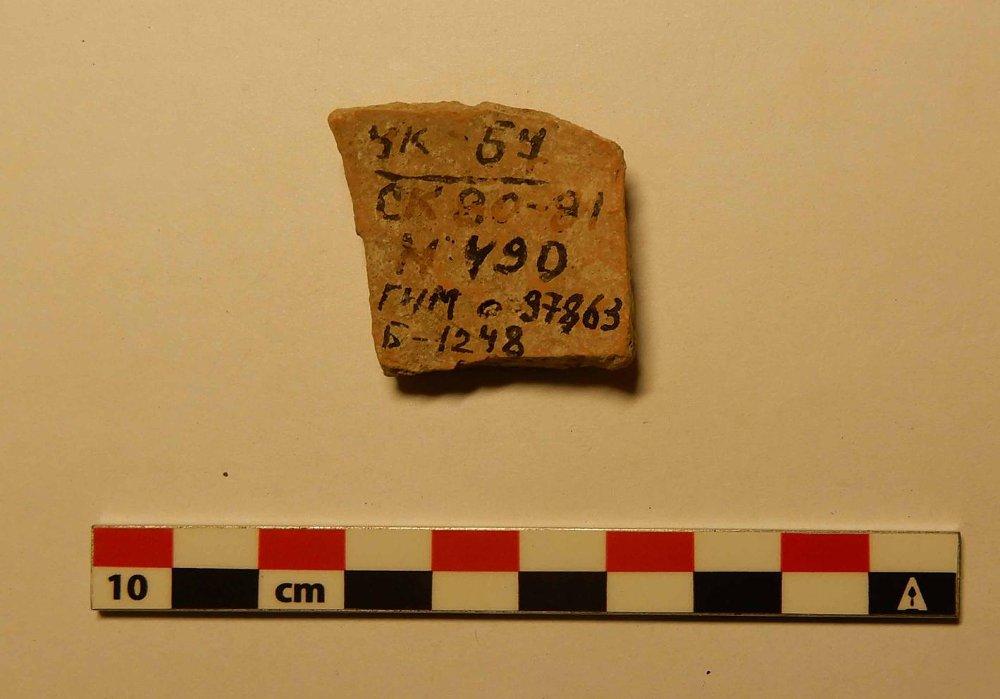 УК БУ
СК 80-81
№ 490
ГИМ о 97863
Б-1248
10 cm